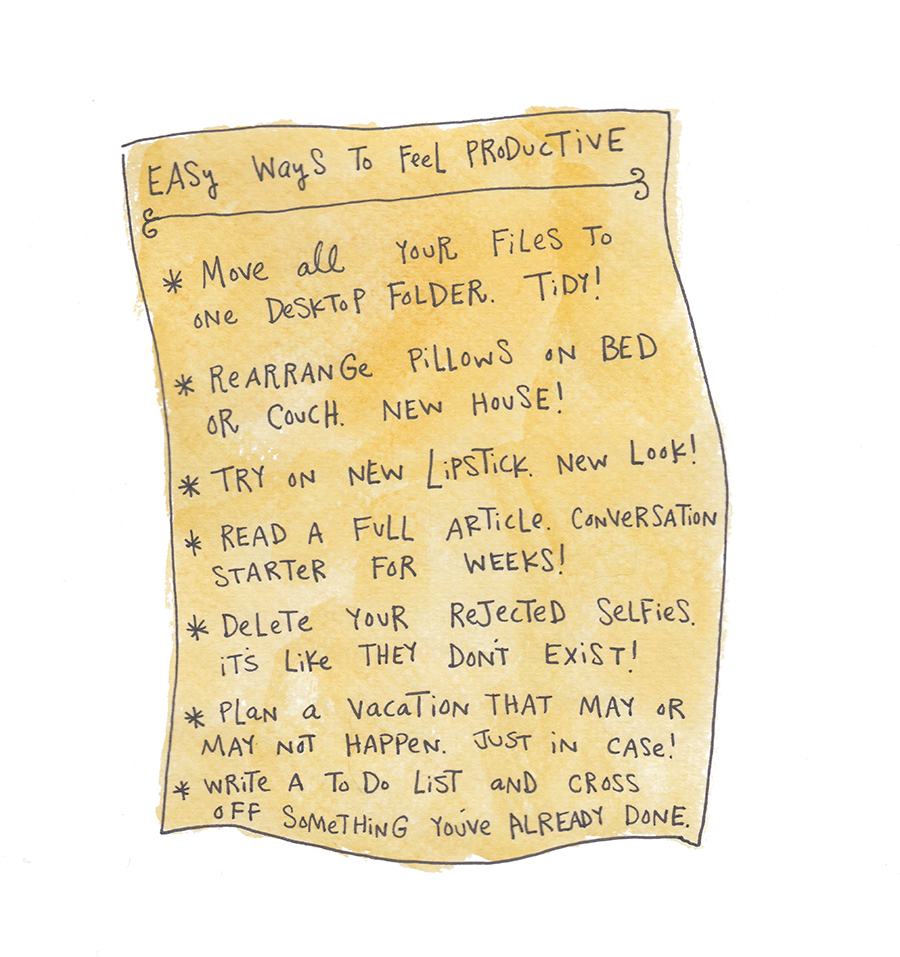 EASy WAyS To FeeL PRoDucTiVE
* Move all YouR FiLeS To
oNe DeSkToP FoLDER. TiDY!
* ReARRANGe PiLLowS oN BED
oR CoucH. NEW HouSE!
* TRY oN NEW LiPSTicK. New Look!
* READ A FuLL ARTicLe. CoNVeRSATioN
STARTeR FoR WEEKS!
* DeLeTe YouR ReJecTeD SeLFieS.
iT'S Like THEY DoN'T EXiST!
* PLan a VacaTioN THAT MAY oR
MAY NoT HAPPeN. JuST iN CASe!
* WRiTe A To Do LiST aND CRoSS
oFF SoMeTHiNG You've ALREADY DoNE.